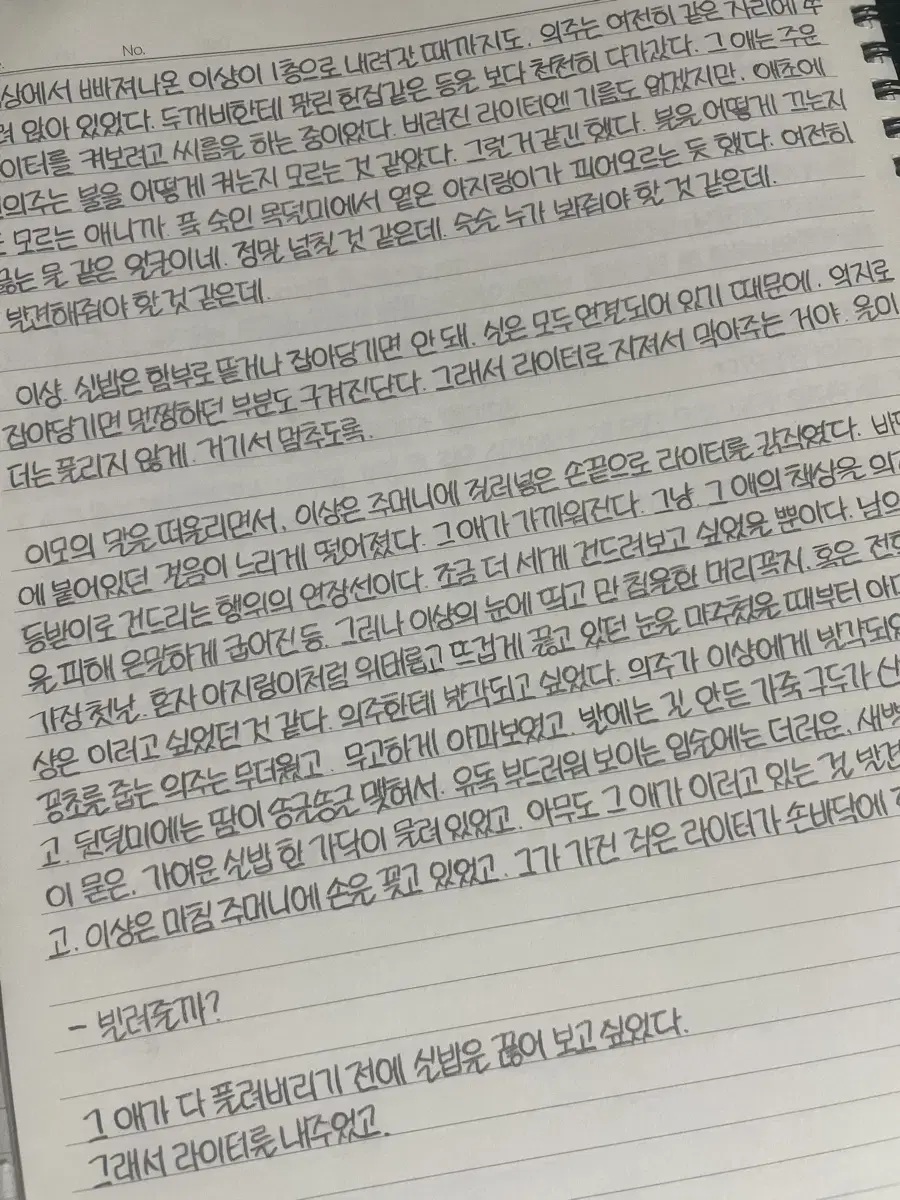 No.
상에서 빠져나온 이상이 1층으로 내려갈 때까지도. 의주는 여전히 같은 자리에
앉아 있었다. 두꺼비한테 팔린 헌집같은 등을 보다 천천히 다가갔다. 그 애는 주운
라이터를 켜보려고 씨름을 하는 중이었다. 버려진 라이터엔 기름도 없겠지만. 애초에
의주는 불을 어떻게 켜는지 모르는 것 같았다. 그럴 거 같긴 했다. 불을 어떻게 끄는지
모르는 애니까. 푹 숙인 목덜미에서 옅은 아지랑이가 피어오르는 듯 했다. 여전히
끓는 물 같은 얼굴이네. 정말 넘칠 것 같은데. 슬슬 누가 봐줘야 할 것 같은데.
발견해줘야 할 것 같은데.
이상. 실밥은 함부로 뜯거나 잡아당기면 안 돼. 실은 모두 연결되어 있기 때문에. 억지로
잡아당기면 멀쩡하던 부분도 구겨진단다. 그래서 라이터로 지져서 막아주는 거야. 올이
더는 풀리지 않게. 거기서 멈추도록.
이모의 말을 떠올리면서. 이상은 주머니에 찔러넣은 손끝으로 라이터를 긁적였다.
에 붙어있던 걸음이 느리게 떨어졌다. 그 애가 가까워진다. 그냥. 그 애의 책상을
등받이로 건드리는 행위의 연장선이다. 조금 더 세게 건드려보고 싶었을 뿐이다. 남의
을 피해 은밀하게 굽어진 등. 그러나 이상의 눈에 띄고 만 침울한 머리꼭지. 혹은
가장 첫날. 혼자 아지랑이처럼 위태롭고 뜨겁게 끓고 있던 눈을 마주쳤을 때부터
상은 이러고 싶었던 것 같다. 의주한테 발각되고 싶었다. 의주가 이상에게
꽁초를 줍는 의주는 무더웠고. 무고하게 야마보였고. 발에는 길 안든 가죽 구두가
고. 뒷덜미에는 땀이 송글송글 맺혀서. 유독 부드러워 보이는 입술에는 더러운.
이 묻은. 가여운 실밥 한 가닥이 물려 있었고. 아무도 그 애가 이러고 있는 걸
고. 이상은 마침 주머니에 손을 꽂고 있었고. 그가 가진 작은 라이터가 손바닥에
- 빌려줄까?
그 애가 다 풀려버리기 전에 실밥을 끊어 보고 싶었다.
그래서 라이터를 내주었고.